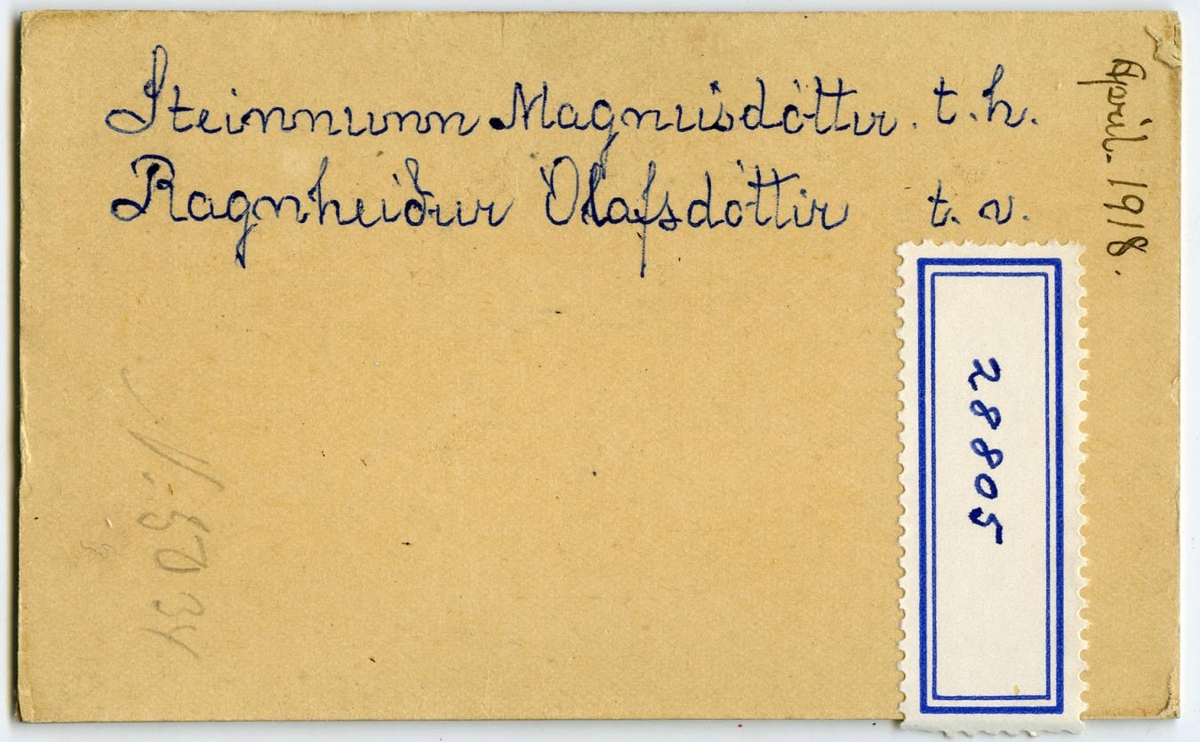 Steinnunn Magnúsdóttir. t.h.
Ragnheiður Ólafsdóttir t.v.
Apríl- 1918.
28805